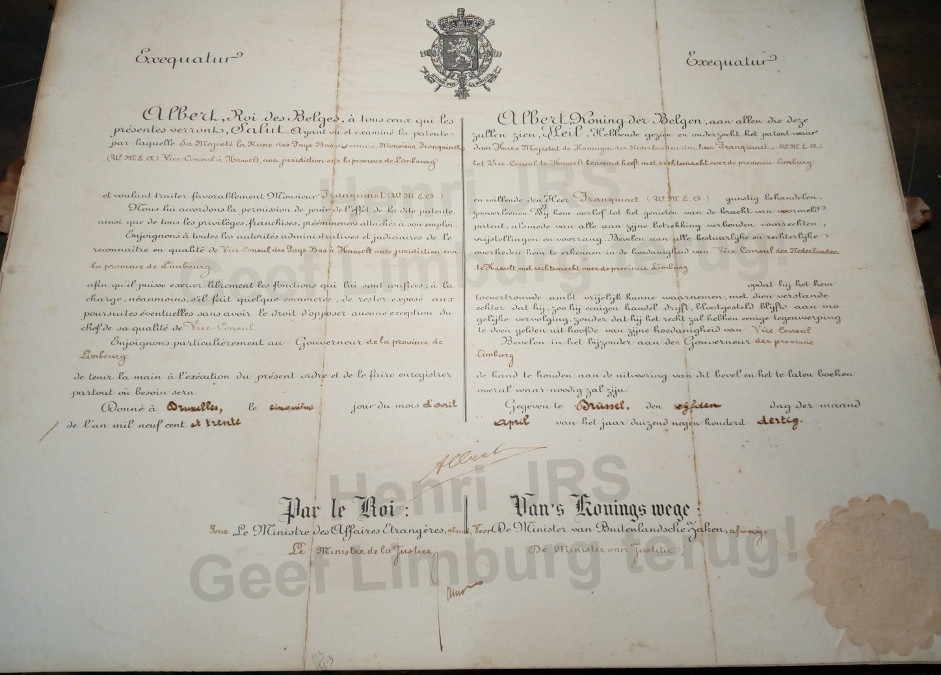 Exequatur
Albert, Roi des Belges, à tous ceux qui les
présentes verront, Salut. Ayant vu et examiné la patente
par laquelle Sa Majesté la Reine des Pays Bas a nommé Monsieur Franquinet
(W.M.E.O.) Vice-Consul à Hasselt, avec juridiction sur la province de Limbourg
et voulant traiter favorablement Monsieur Franquinet (W.M.E.O.)
Nous lui accordons la permission de jouir de l'effet de la dite patente,
ainsi que de tous les privilèges, franchises, prééminences attachés à son emploi.
Enjoignons à toutes les autorités administratives et judiciaires de le
reconnaître en qualité de Vice Consul des Pays-Bas à Hasselt avec juridiction sur
la province de Limbourg
afin qu'il puisse exercer librement les fonctions qui lui sont confiées, à la
charge, néanmoins, s'il fait quelque commerce, de rester exposé aux
poursuites éventuelles sans avoir le droit d'opposer aucune exception du
chef de sa qualité de Vice-Consul
Enjoignons particulièrement au Gouverneur de la province de
Limbourg
de tenir la main à l'exécution du présent ordre et de le faire enregistrer
partout où besoin sera
Donné à Bruxelles, le cinquième jour du mois d'avril
de l'an mil neuf cent et trente
Exequatur
Albert Koning der Belgen, aan allen die deze
zullen zien, Heil. Hebbende gezien en onderzocht het patent waar
door Hare Majesteit de Koningin der Nederlanden den heer Franquinet (W.M.E.O.)
tot Vice-Consul te Hasselt benoemd heeft met rechtsmacht over de provincie Limburg
en willende den Heer Franquinet (W.M.E.O.) gunstig behandelen,
zoo verleenen Wij hem oorlof tot het genieten van de kracht van voormeld
patent, alsmede van alle aan zijne betrekking verbonden voorrechten,
vrijstellingen en voorrang. Bevelen aan alle bestuurlijke en rechterlijke
overheden hem te erkennen in de hoedanigheid van Vice Consul der Nederlanden
te Hasselt met rechtsmacht over de provincie Limburg
opdat hij het hem
toevertrouwde ambt vrijelijk kunne waarnemen, met dien verstande
echter dat hij, zoo hij eenigen handel drijft, blootgesteld blijft aan mo
gelijke vervolging, zonder dat hij het recht zal hebben eenige tegenwerping
te doen gelden uit hoofde van zijne hoedanigheid van Vice Consul
Bevelen in het bijzonder aan den Gouverneur der provincie
Limburg
de hand te houden aan de uitvoering van dit bevel en het te laten boeken
overal waar noodig zal zijn.
Gegeven te Brussel, den dag der maand
April van het jaar duizend negen honderd dertig.
Albert
Par le Roi :
Pour Le Ministre des Affaires Etrangères,
Le Ministre de la Justice
Van 's Konings wege :
Voor De Minister van Buitenlandsche Zaken, afwezig,
De Minister van Justitie,
Henri JRS
Geef Limburg terug!
Henri JRS
Geef Limburg terug!